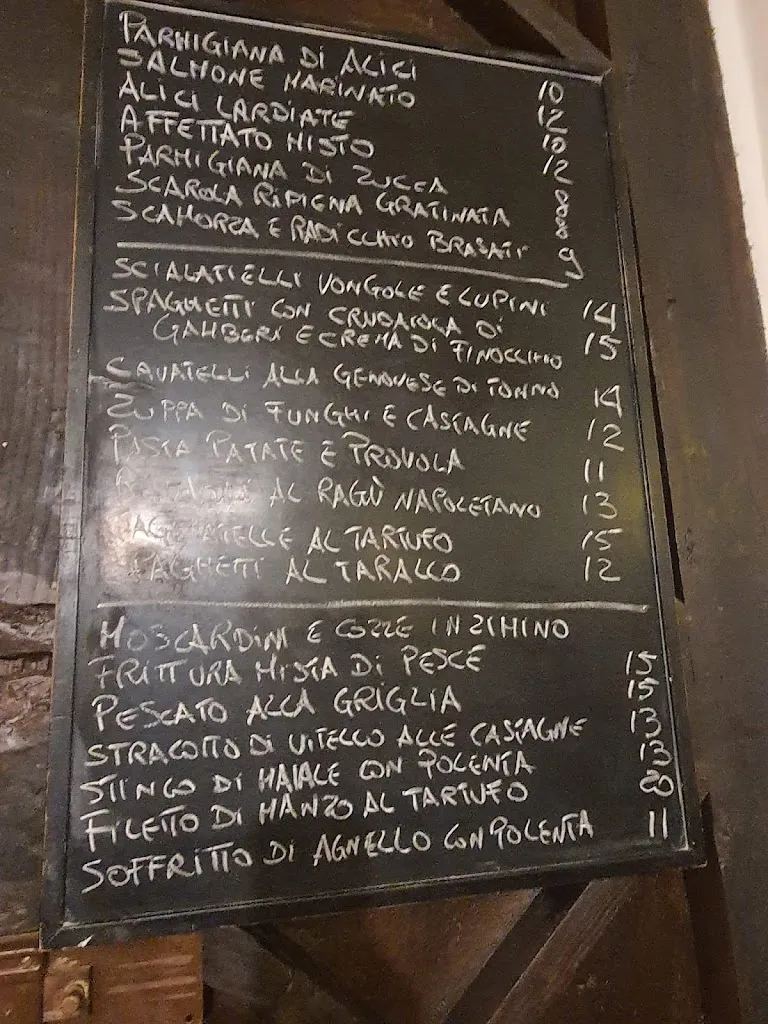 PARMIGIANA DI ALICI 10
SALMONE MARINATO 12
ALICI LARDIATE 10
AFFETTATO MISTO 12
PARMIGIANA DI ZUCCA 8
SCAROLA RIPIENA GRATINATA 8
SCAMORZA E RADICCHIO BRASATI 9
SCIALATIELLI VONGOLE E LUPINI 14
SPAGHETTI CON CRUDAIOLA DI
GAMBERI E CREMA DI FINOCCHIO 15
CAVATELLI ALLA GENOVESE DI TONNO 14
ZUPPA DI FUNGHI E CASTAGNE 12
PASTA PATATE E PROVOLA 11
AL RAGÙ NAPOLETANO 13
TAGLIATELLE AL TARTUFO 15
SPAGHETTI AL TARALLO 12
MOSCARDINI E COZZE IN ZIMINO
FRITTURA MISTA DI PESCE 15
PESCATO ALLA GRIGLIA 15
STRACOTTO DI VITELLO ALLE CASTAGNE 13
STINCO DI MAIALE CON POLENTA 13
FILETTO DI MANZO AL TARTUFO 20
SOFFRITTO DI AGNELLO CON POLENTA 11